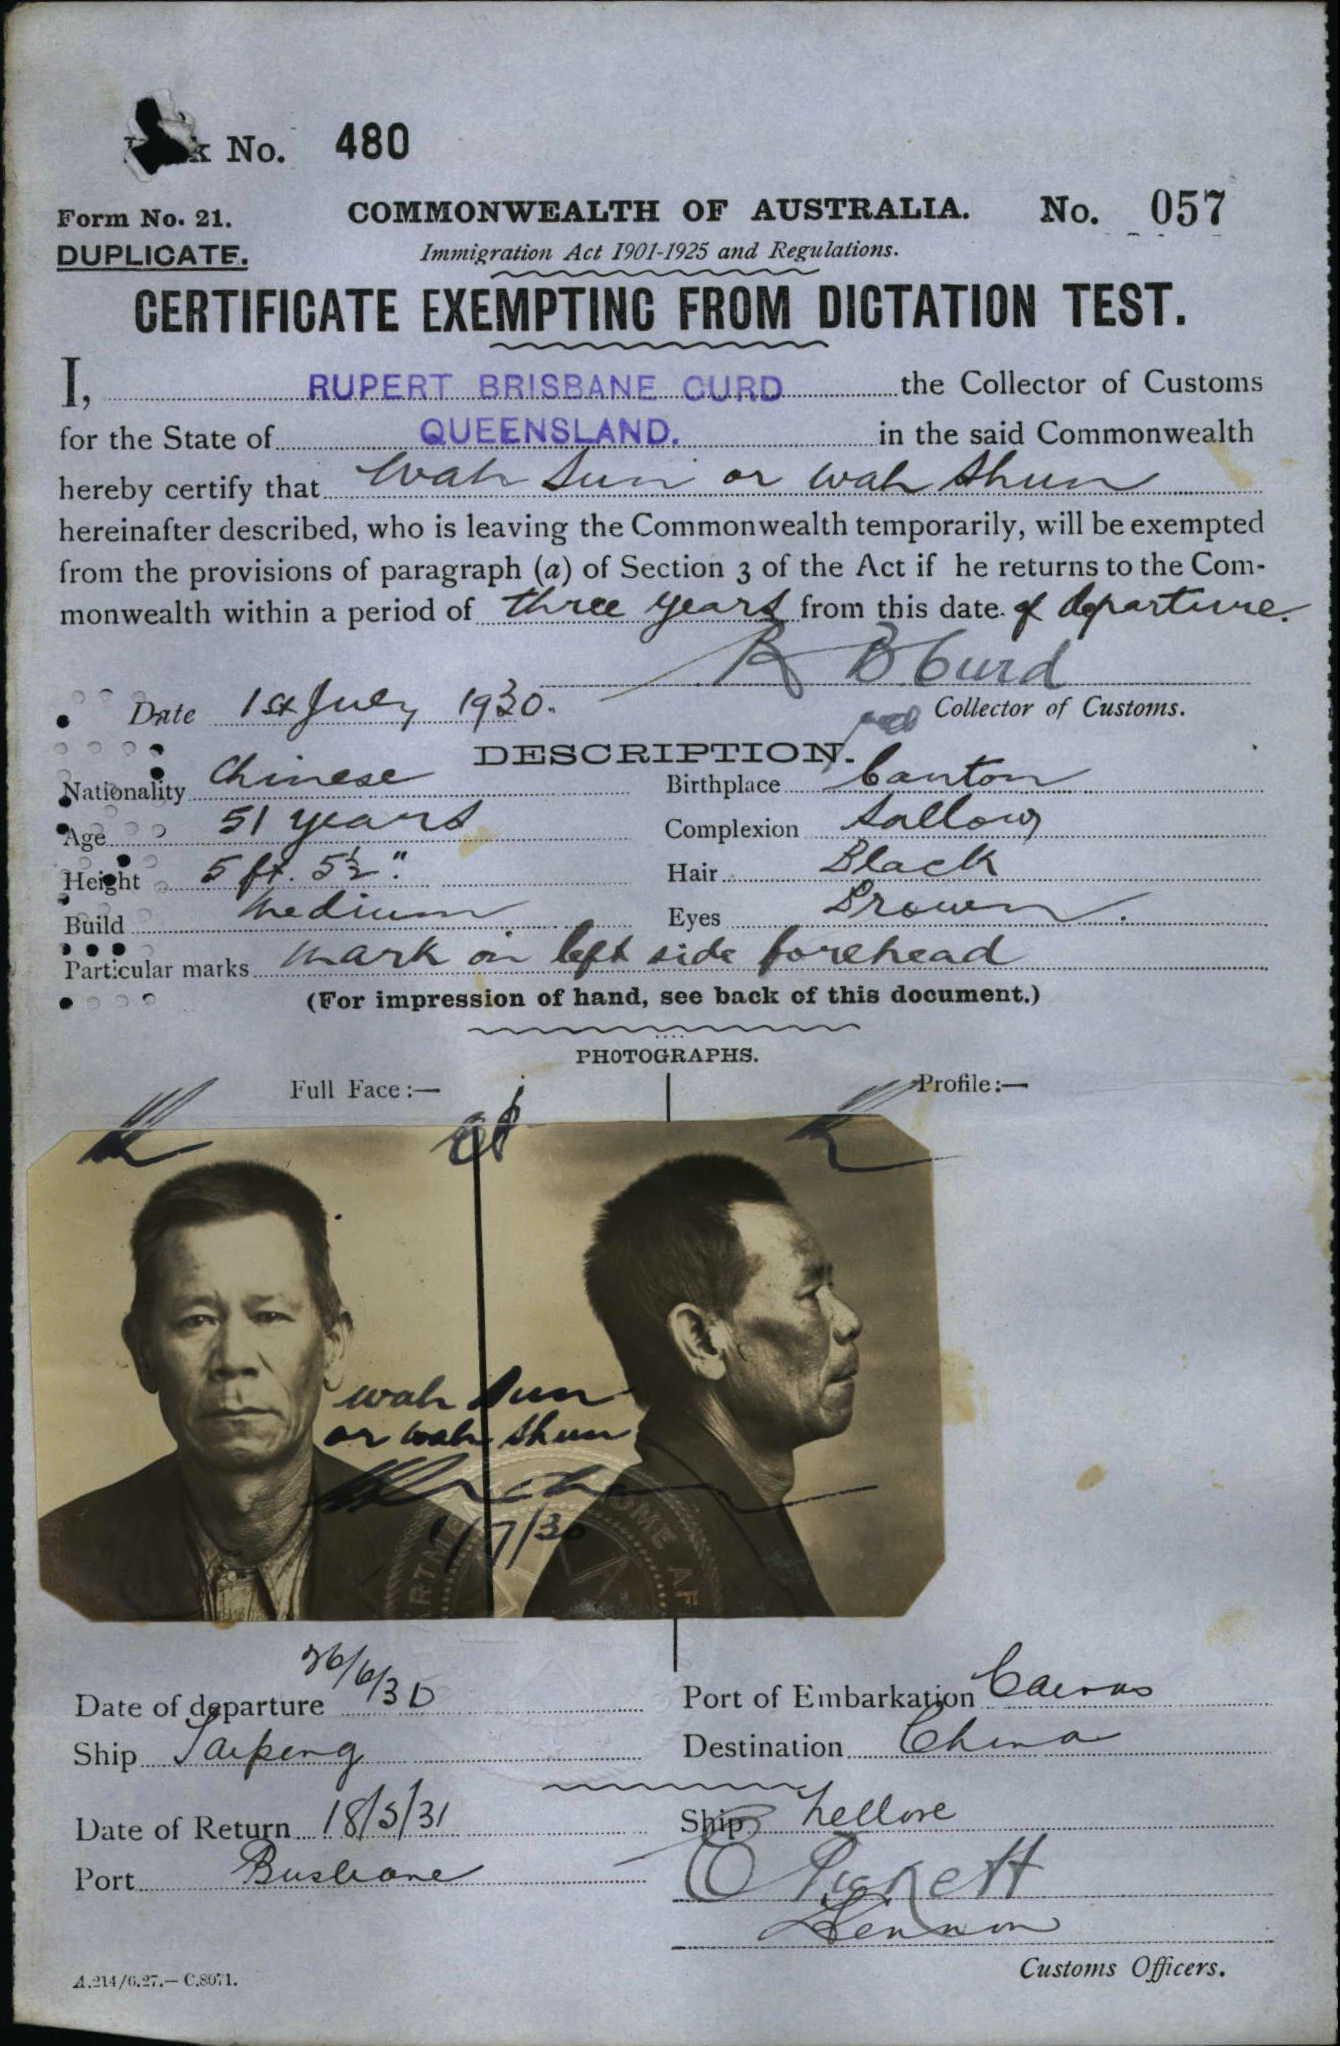 No. 480
Form No. 21. COMMONWEALTH OF AUSTRALIA. No. 057
DUPLICATE. Immigration Act 1901-1925 and Regulations.
CERTIFICATE EXEMPTING FROM DICTATION TEST.
I, RUPERT BRISBANE CURD the Collector of Customs
for the State of QUEENSLAND. in the said Commonwealth
hereby certify that Wah Sun or Wah Shun
hereinafter described, who is leaving the Commonwealth temporarily, will be exempted
from the provisions of paragraph (a) of Section 3 of the Act if he returns to the Com-
monwealth within a period of three years from this date of departure.
R B Curd
Date 1st July 1930. Collector of Customs.
DESCRIPTION.
Nationality Chinese Birthplace Canton
Age 51 years Complexion Sallow
Height 5 ft. 5½". Hair Black
Build Medium Eyes Brown.
Particular marks mark on left side forehead
(For impression of hand, see back of this document.)
PHOTOGRAPHS.
Full Face:— Profile:—
Wah Sun
or Wah Shun
1/7/30
Date of departure 26/6/30 Port of Embarkation Cairns
Ship Taiping Destination China
Date of Return 18/5/31 Ship Nellore
Port Brisbane
Customs Officers.
A.214/6.27.—C.8071.